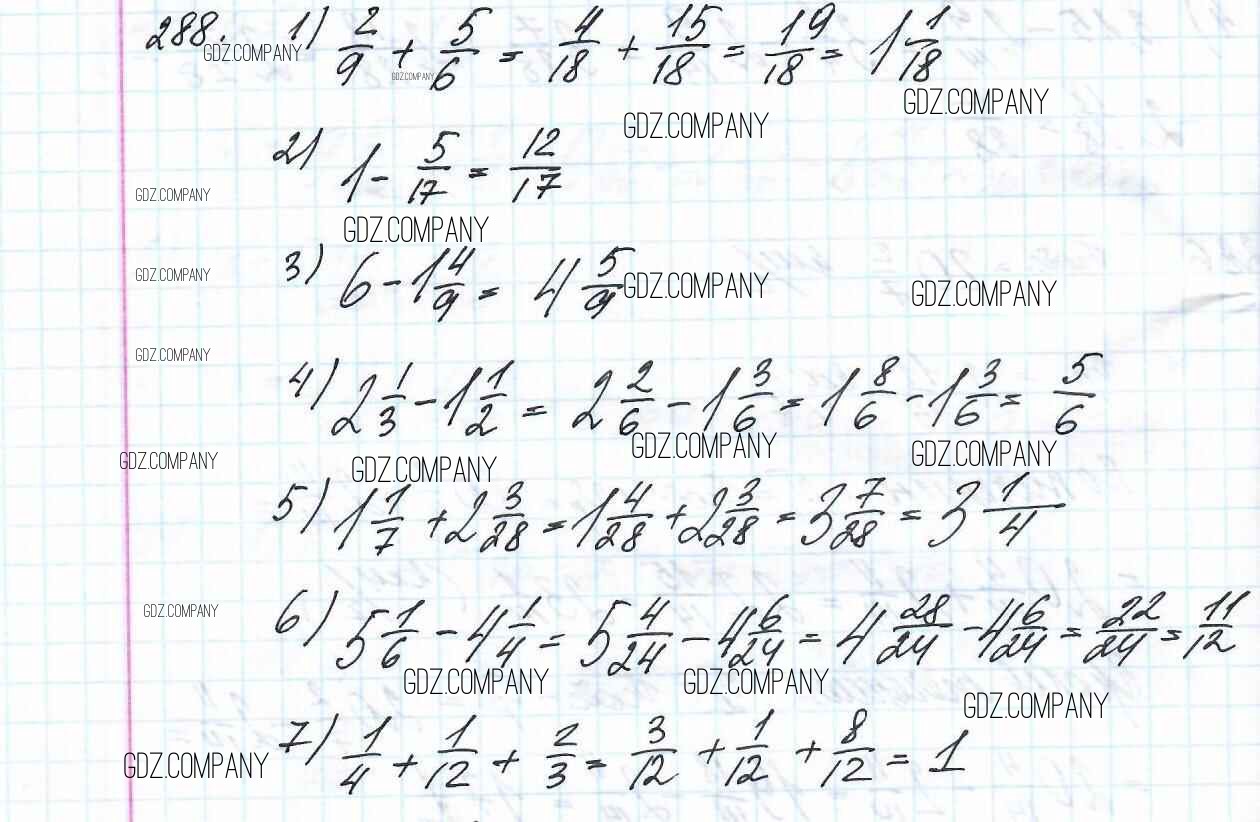 288. 1) 2/9 + 5/6 = 4/18 + 15/18 = 19/18 = 1 1/18
GDZ.COMPANY GDZ.COMPANY GDZ.COMPANY
GDZ.COMPANY
2) 1 - 5/17 = 12/17
GDZ.COMPANY
GDZ.COMPANY
3) 6 - 1 4/9 = 4 5/9
GDZ.COMPANY GDZ.COMPANY GDZ.COMPANY
GDZ.COMPANY
4) 2 1/3 - 1 1/2 = 2 2/6 - 1 3/6 = 1 8/6 - 1 3/6 = 5/6
GDZ.COMPANY GDZ.COMPANY GDZ.COMPANY GDZ.COMPANY
5) 1 1/7 + 2 3/28 = 1 4/28 + 2 3/28 = 3 7/28 = 3 1/4
GDZ.COMPANY
6) 5 1/6 - 4 1/4 = 5 4/24 - 4 6/24 = 4 28/24 - 4 6/24 = 22/24 = 11/12
GDZ.COMPANY GDZ.COMPANY GDZ.COMPANY
7) 1/4 + 1/12 + 2/3 = 3/12 + 1/12 + 8/12 = 1
GDZ.COMPANY